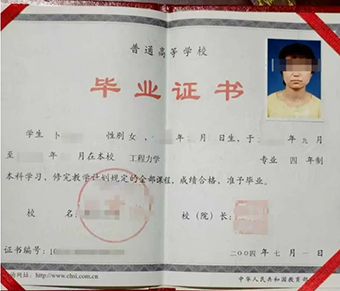 普通高等学校
毕业证书
学生 卜 性别 女, 年 月 日生,于 年 九 月
至 年 月在本校 工程力学 专业 四 年制
本科学习,修完教学计划规定的全部课程,成绩合格,准予毕业。
校 名: 校(院)长:
证书编号:1 二〇〇四年 七 月 一 日
查询网址:http://www.chsi.com.cn 中华人民共和国教育部